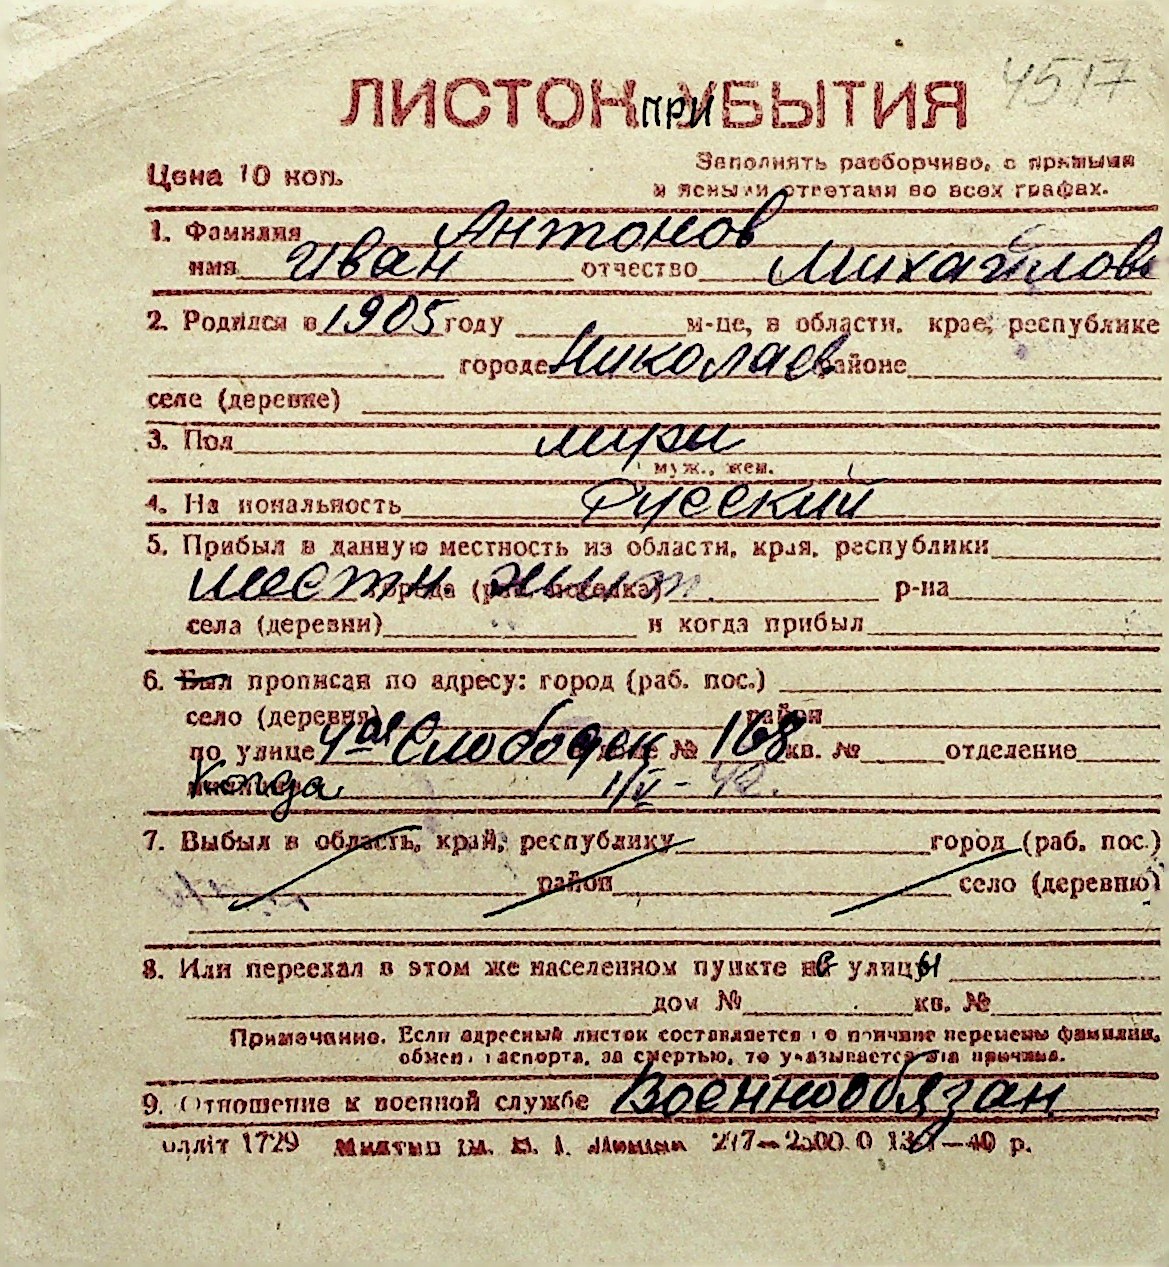 4517
ЛИСТОК ПРИБЫТИЯ
Цена 10 коп.
Заполнять разборчиво, с прямыми
и ясными ответами во всех графах.
1. Фамилия Антонов
имя Иван отчество Михайлов
2. Родился в 1905 году м-це, в области, крае, республике
городе Николаев районе
селе (деревне)
3. Пол
муж., жен.
4. Национальность Русский
5. Прибыл в данную местность из области, края, республики
местн. жит. города (раб. поселка) р-на
села (деревни) и когда прибыл
6. Был прописан по адресу: город (раб. пос.)
село (деревня) район
по улице 4ая Слободск № 168 кв. № отделение
Когда 1/V - 42.
7. Выбыл в область, край, республику город (раб. пос.)
район село (деревню)
8. Или переехал в этом же населенном пункте с улицы
дом № кв. №
Примечание. Если адресный листок составляется по причине перемены фамилии,
обмена паспорта, за смертью, то указывается эта причина.
9. Отношение к военной службе Военнообязан
1729 40 р.